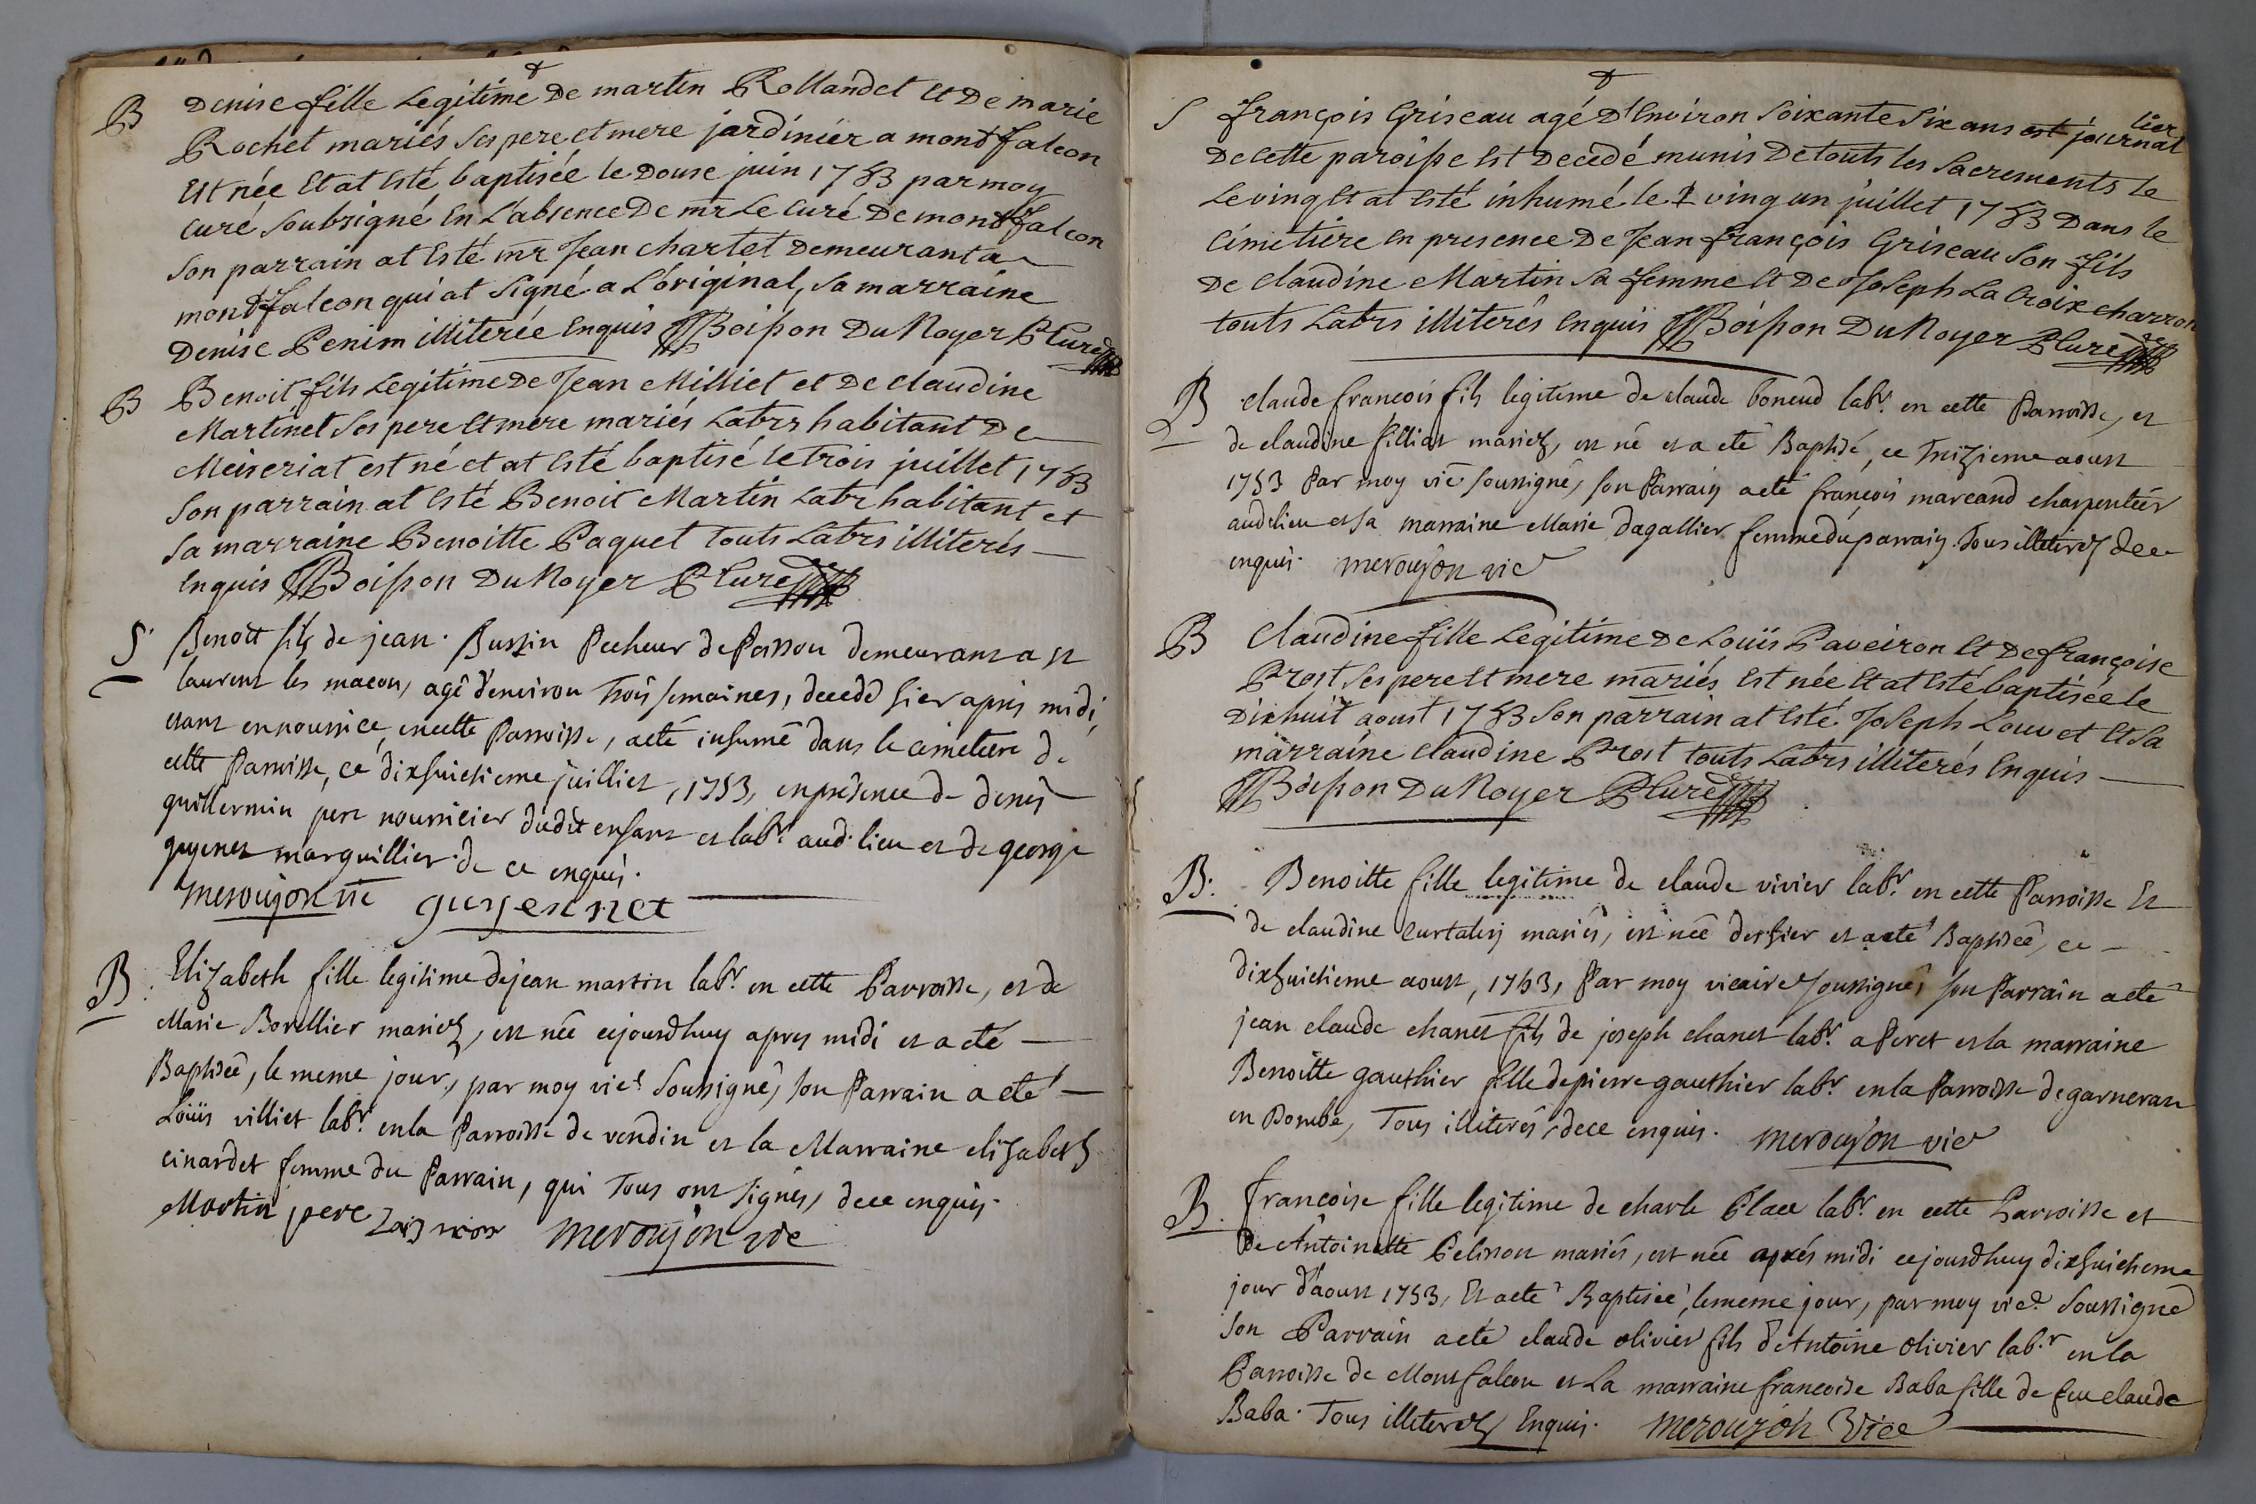 B Denise fille Legitime De martin Rollandet Et De marie
Rochet mariés ses pere et mere jardinier a montfalcon
Est née Et at Esté baptisée le Douse juin 1753 par moy
curé soubsigné En L'absence De mr Le curé De montfalcon
son parrain at Esté mr Jean chartet Demeurant a
montfalcon qui at signé a L'original, sa marraine
Denise Penim illiterée Enquis Boisson Du Noyer P Curé
B Benoit fils Legitime De Jean Milliet et De claudine
Martinet ses pere Et mere mariés Labrs habitant De
Meiseriat est né et at Esté baptisé le trois juillet 1753
son parrain at Esté Benoit Martin Labr habitant et
sa marraine Benoitte Paquet touts Labrs illiterés
Enquis Boisson Du Noyer P Curé
S. Benoit fils de jean Bussin Pecheur de Poisson demeurant a st
laurent les macon, agé d'environ trois semaines, decedé hier après midi,
etant en nourrice, en cette Parroisse, a eté inhumé dans le cimetiere de
cette Parroisse, ce dixhuictieme juilliet, 1753, en présence de denis
guillermin pere nourricier dudit enfant et labr. aud. lieu et de george
guyenet marguillier de ce enquis.
meroujon vic guyennet
B. Elizabeth fille legitime de jean martin labr. en cette Parroisse, et de
Marie Borellier mariez, est née cejourdhuy apres midi et a eté
Baptiseé, le meme jour, par moy vice. soussigné, son Parrain a eté
Loüis villiet labr. en la Parroisse de vendin et la Marraine elizabeth
cinardet femme du Parrain, qui tous ont signés, de ce enquis.
Martin pere meroujon vic
S françois Griseau agé D'Environ soixante six ans est journal
lier
De cette paroisse Est Decedé munis De touts les sacrements le
Le vingt Et at Esté inhumé le vingt un juillet 1753 Dans le
cimetiere En presence De Jean françois Griseau son fils
De claudine Martin sa femme Et De Joseph La Croix charron
touts Labrs illiterés Enquis Boisson Du Noyer P Curé
B claude francois fils legitime de claude boneud labr. en cette Parroisse, et
de claudine filliat mariez, est né et a eté Baptisé, ce treizieme aoust
1753 Par moy vic soussigné, son Parrain a eté françois marcand charpentier
audit lieu et sa marraine Marie dagallier femme du parrain. Tous illiterez de ce
enquis. meroujon vic
B Claudine fille Legitime De Loüis Paveiron Et De françoise
Prost ses pere Et mere mariés Est née Et at Esté baptisée le
Dixhuit aoust 1753 son parrain at Esté Joseph Louvet Et sa
marraine claudine Prost touts Labrs illiterés Enquis
Boisson Du Noyer P Curé
B. Benoitte fille legitime de claude vivier labr. en cette Parroisse Et
de claudine mariés, est née hier et a eté Baptiseé, ce
dixhuictieme aoust, 1753, Par moy vicaire soussigné, son Parrain a eté
jean claude chanet fils de joseph chanet labr. a Peret et la marraine
Benoitte gauthier fille de pierre gauthier labr. en la Parroisse de garneran
en Dombe, Tous illiterés, de ce enquis. meroujon vic
B. francoise fille legitime de charle Place labr. en cette Parroisse et
De Antoinette Pelisson mariés, est née après midi cejourdhuy dixhuictieme
jour d'aoust 1753, Et a eté Baptisée, le meme jour, par moy vic. soussigné
son Parrain a eté claude olivier fils d'Antoine olivier labr. en la
Parroisse de Montfalcon et La marraine francoise Baba fille de feu claude
Baba. Tous illiterez Enquis. meroujon Vice